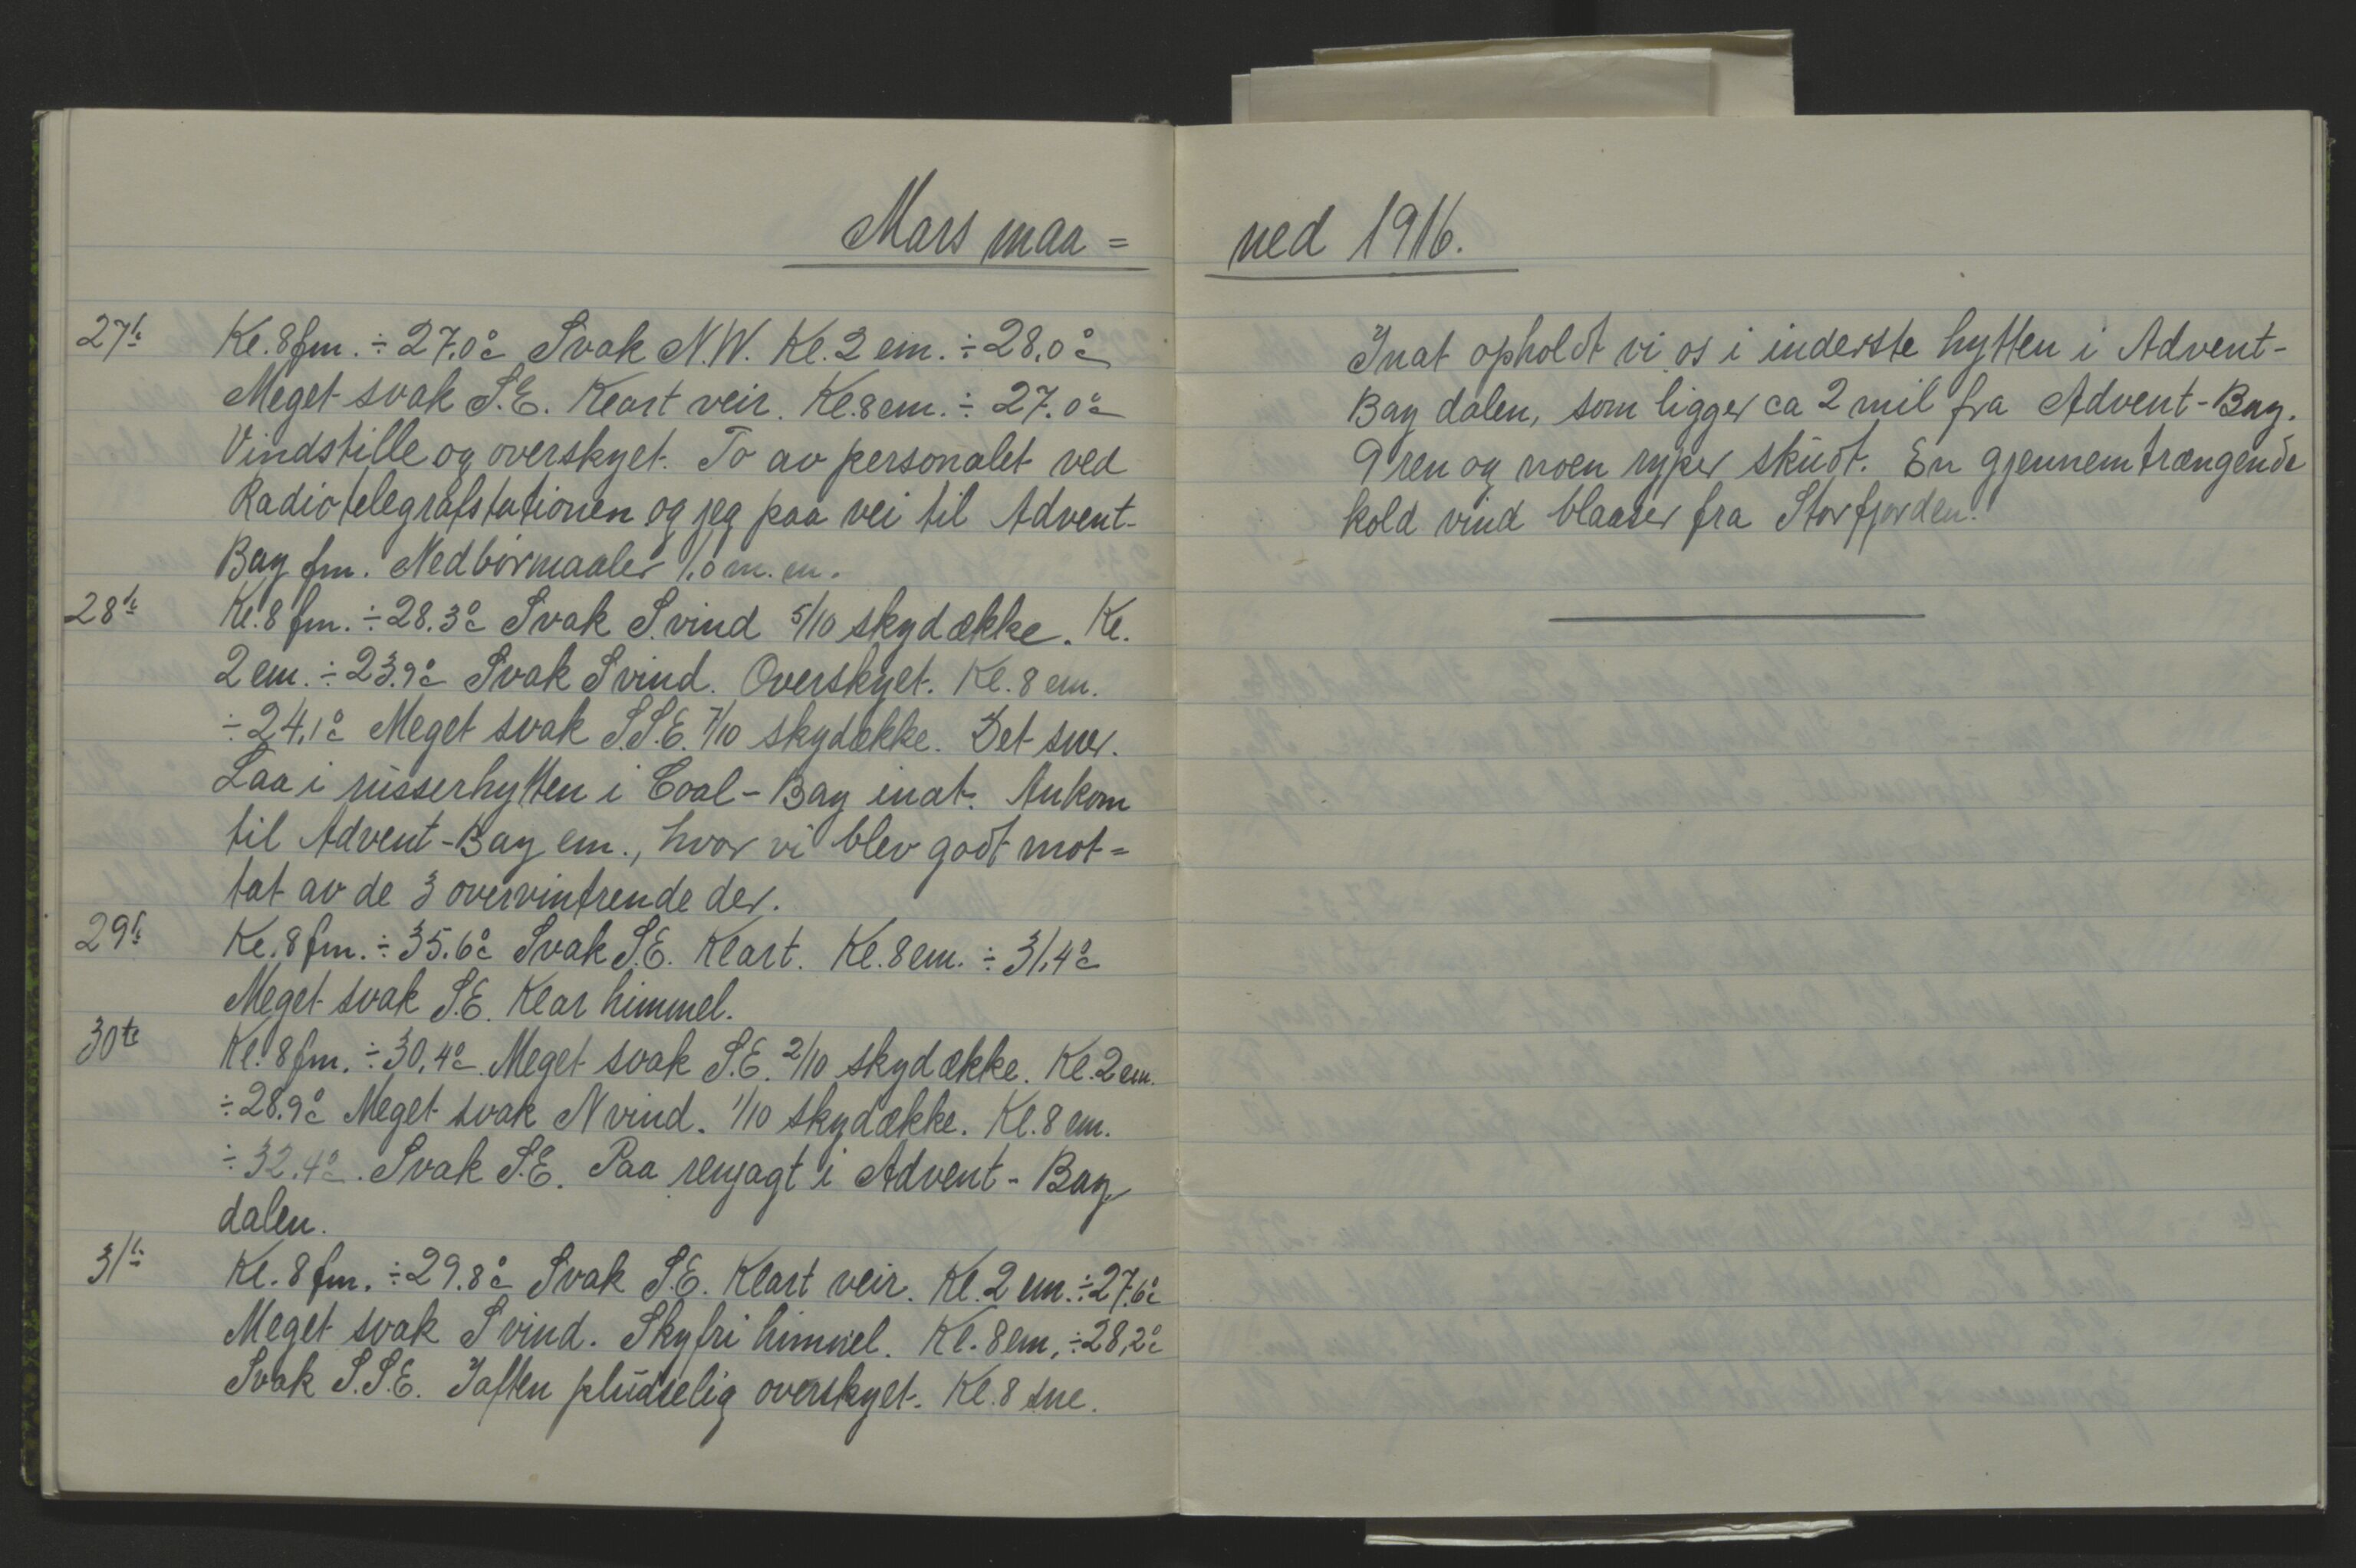 Mars maa=
27de Kl. 8 fm. ÷ 27,0°c Svak N.W. Kl. 2 em. ÷ 28,0°c
Meget svak S.E. Klart veir. Kl. 8 em. ÷ 27.0°c
Vindstille og overskyet. To av personalet ved
Radiotelegrafstationen og jeg paa vei til Advent-
Bay fm. Nedbørmaaler 1,0 m.m.
28de Kl. 8 fm. ÷ 28.3°c Svak S. vind 5/10 skydække. Kl.
2 em. ÷ 23.9°c Svak S vind. Overskyet. Kl. 8 em.
÷ 24,1°c Meget svak S.S.E. 7/10 skydække. Det sner.
Laa i russerhytten i Coal-Bay inat. Ankom
til Advent-Bay em., hvor vi blev godt mot=
tat av de 3 overvintrende der.
29de Kl. 8 fm. ÷ 35.6°c Svak S.E. Klart. Kl. 8 em. ÷ 31,4°c
Meget svak S.E. Klar himmel.
30te Kl. 8 fm. ÷ 30,4°c. Meget svak S.E. 2/10 skydække. Kl. 2 em.
÷ 28.9°c Meget svak N vind. 1/10 skydække. Kl. 8 em.
÷ 32.4°c. Svak S.E. Paa renjagt i Advent-Bay
dalen.
31te Kl. 8 fm. ÷ 29.8°c Svak S.E. Klart veir. Kl. 2 em. ÷ 27,6°c
Meget svak S vind. Skyfri himmel. Kl. 8 em, ÷ 28,2°c
Svak S.S.E. Iaften pludselig overskyet. Kl. 8 sne.
ned 1916.
Inat opholdt vi os i inderste hytten i Advent-
Bay dalen, som ligger ca 2 mil fra Advent-Bay.
9 ren og noen ryper skudt. En gjennemtrængende
kold vind blaaser fra Storfjorden.